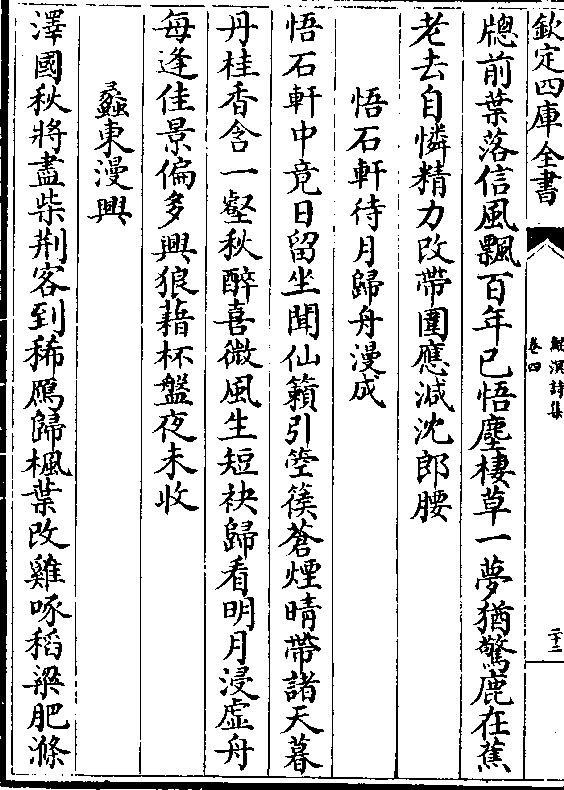 欽定四庫全書
鯤溟詩集
卷四
二十二
牕前葉落信風飄百年已悟塵棲草一夢猶驚鹿在蕉
老去自憐精力改帶圍應減沈郎腰
悟石軒待月歸舟漫成
悟石軒中竟日留坐聞仙籟引箜篌蒼煙晴帶諸天暮
丹桂香含一壑秋醉喜微風生短袂歸看明月浸虛舟
每逢佳景偏多興狼藉杯盤夜未收
蠡東漫興
澤國秋將盡柴荆客到稀鴈歸楓葉改雞啄稻粱肥滌